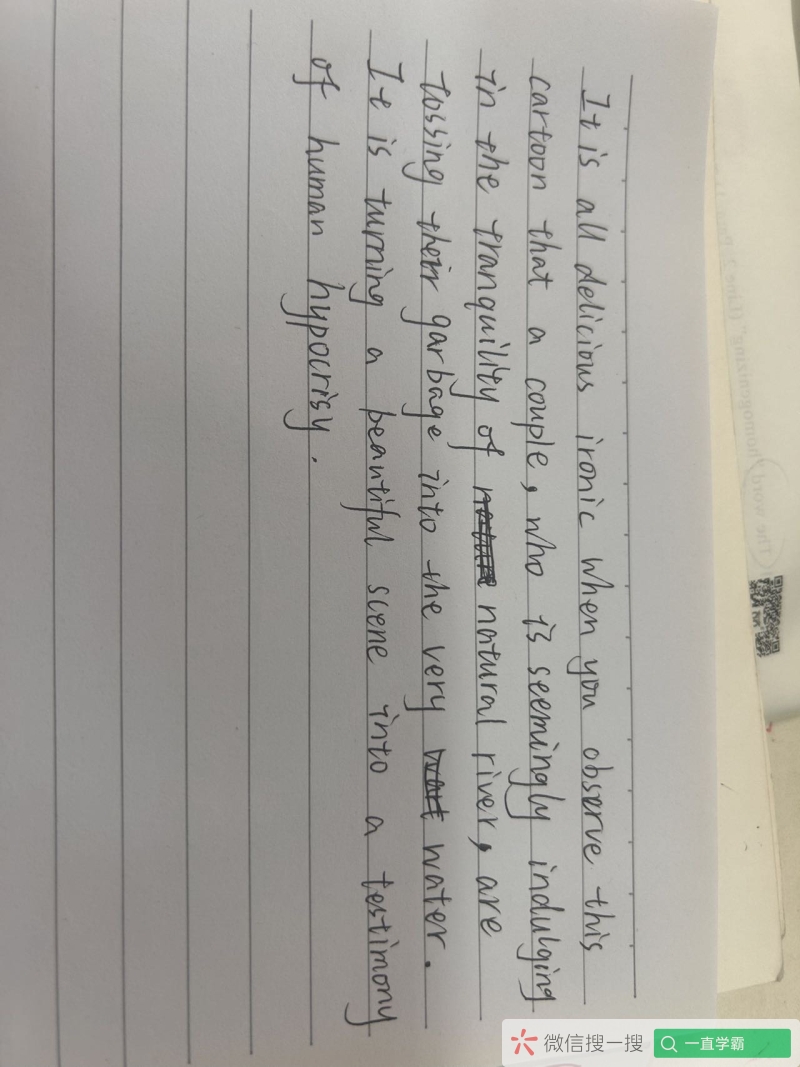 It is all delicious ironic when you observe this
cartoon that a couple, who is seemingly indulging
in the tranquility of natural river, are
tossing their garbage into the very water.
It is turning a beautiful scene into a testimony
of human hypocrisy.
The word "homogenizing" (Line
微信搜一搜
一直学霸